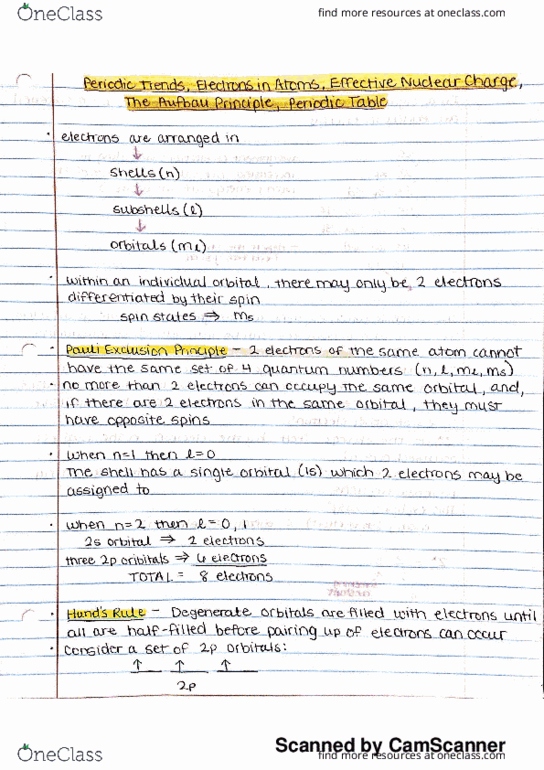 OneClass
find more resources at oneclass.com
Periodic Trends, Electrons in Atoms, Effective Nuclear Charge,
The Aufbau Principle, Periodic Table
• electrons are arranged in
↓
shells (n)
↓
subshells (l)
↓
orbitals (ml)
• within an individual orbital, there may only be 2 electrons
differentiated by their spin
spin states ⇒ ms
• Pauli Exclusion Principle - 2 electrons of the same atom cannot
have the same set of 4 quantum numbers (n, l, ml, ms)
• no more than 2 electrons can occupy the same orbital, and,
if there are 2 electrons in the same orbital, they must
have opposite spins
• when n=1 then l=0
The shell has a single orbital (1s) which 2 electrons may be
assigned to
• when n=2 then l=0, 1
2s orbital ⇒ 2 electrons
three 2p oribitals ⇒ 6 electrons
TOTAL = 8 electrons
• Hund's Rule - Degenerate orbitals are filled with electrons until
all are half-filled before pairing up of electrons can occur
• Consider a set of 2p orbitals:
↑ ↑ ↑
2p
OneClass
Scanned by CamScanner
find more resources at oneclass.com